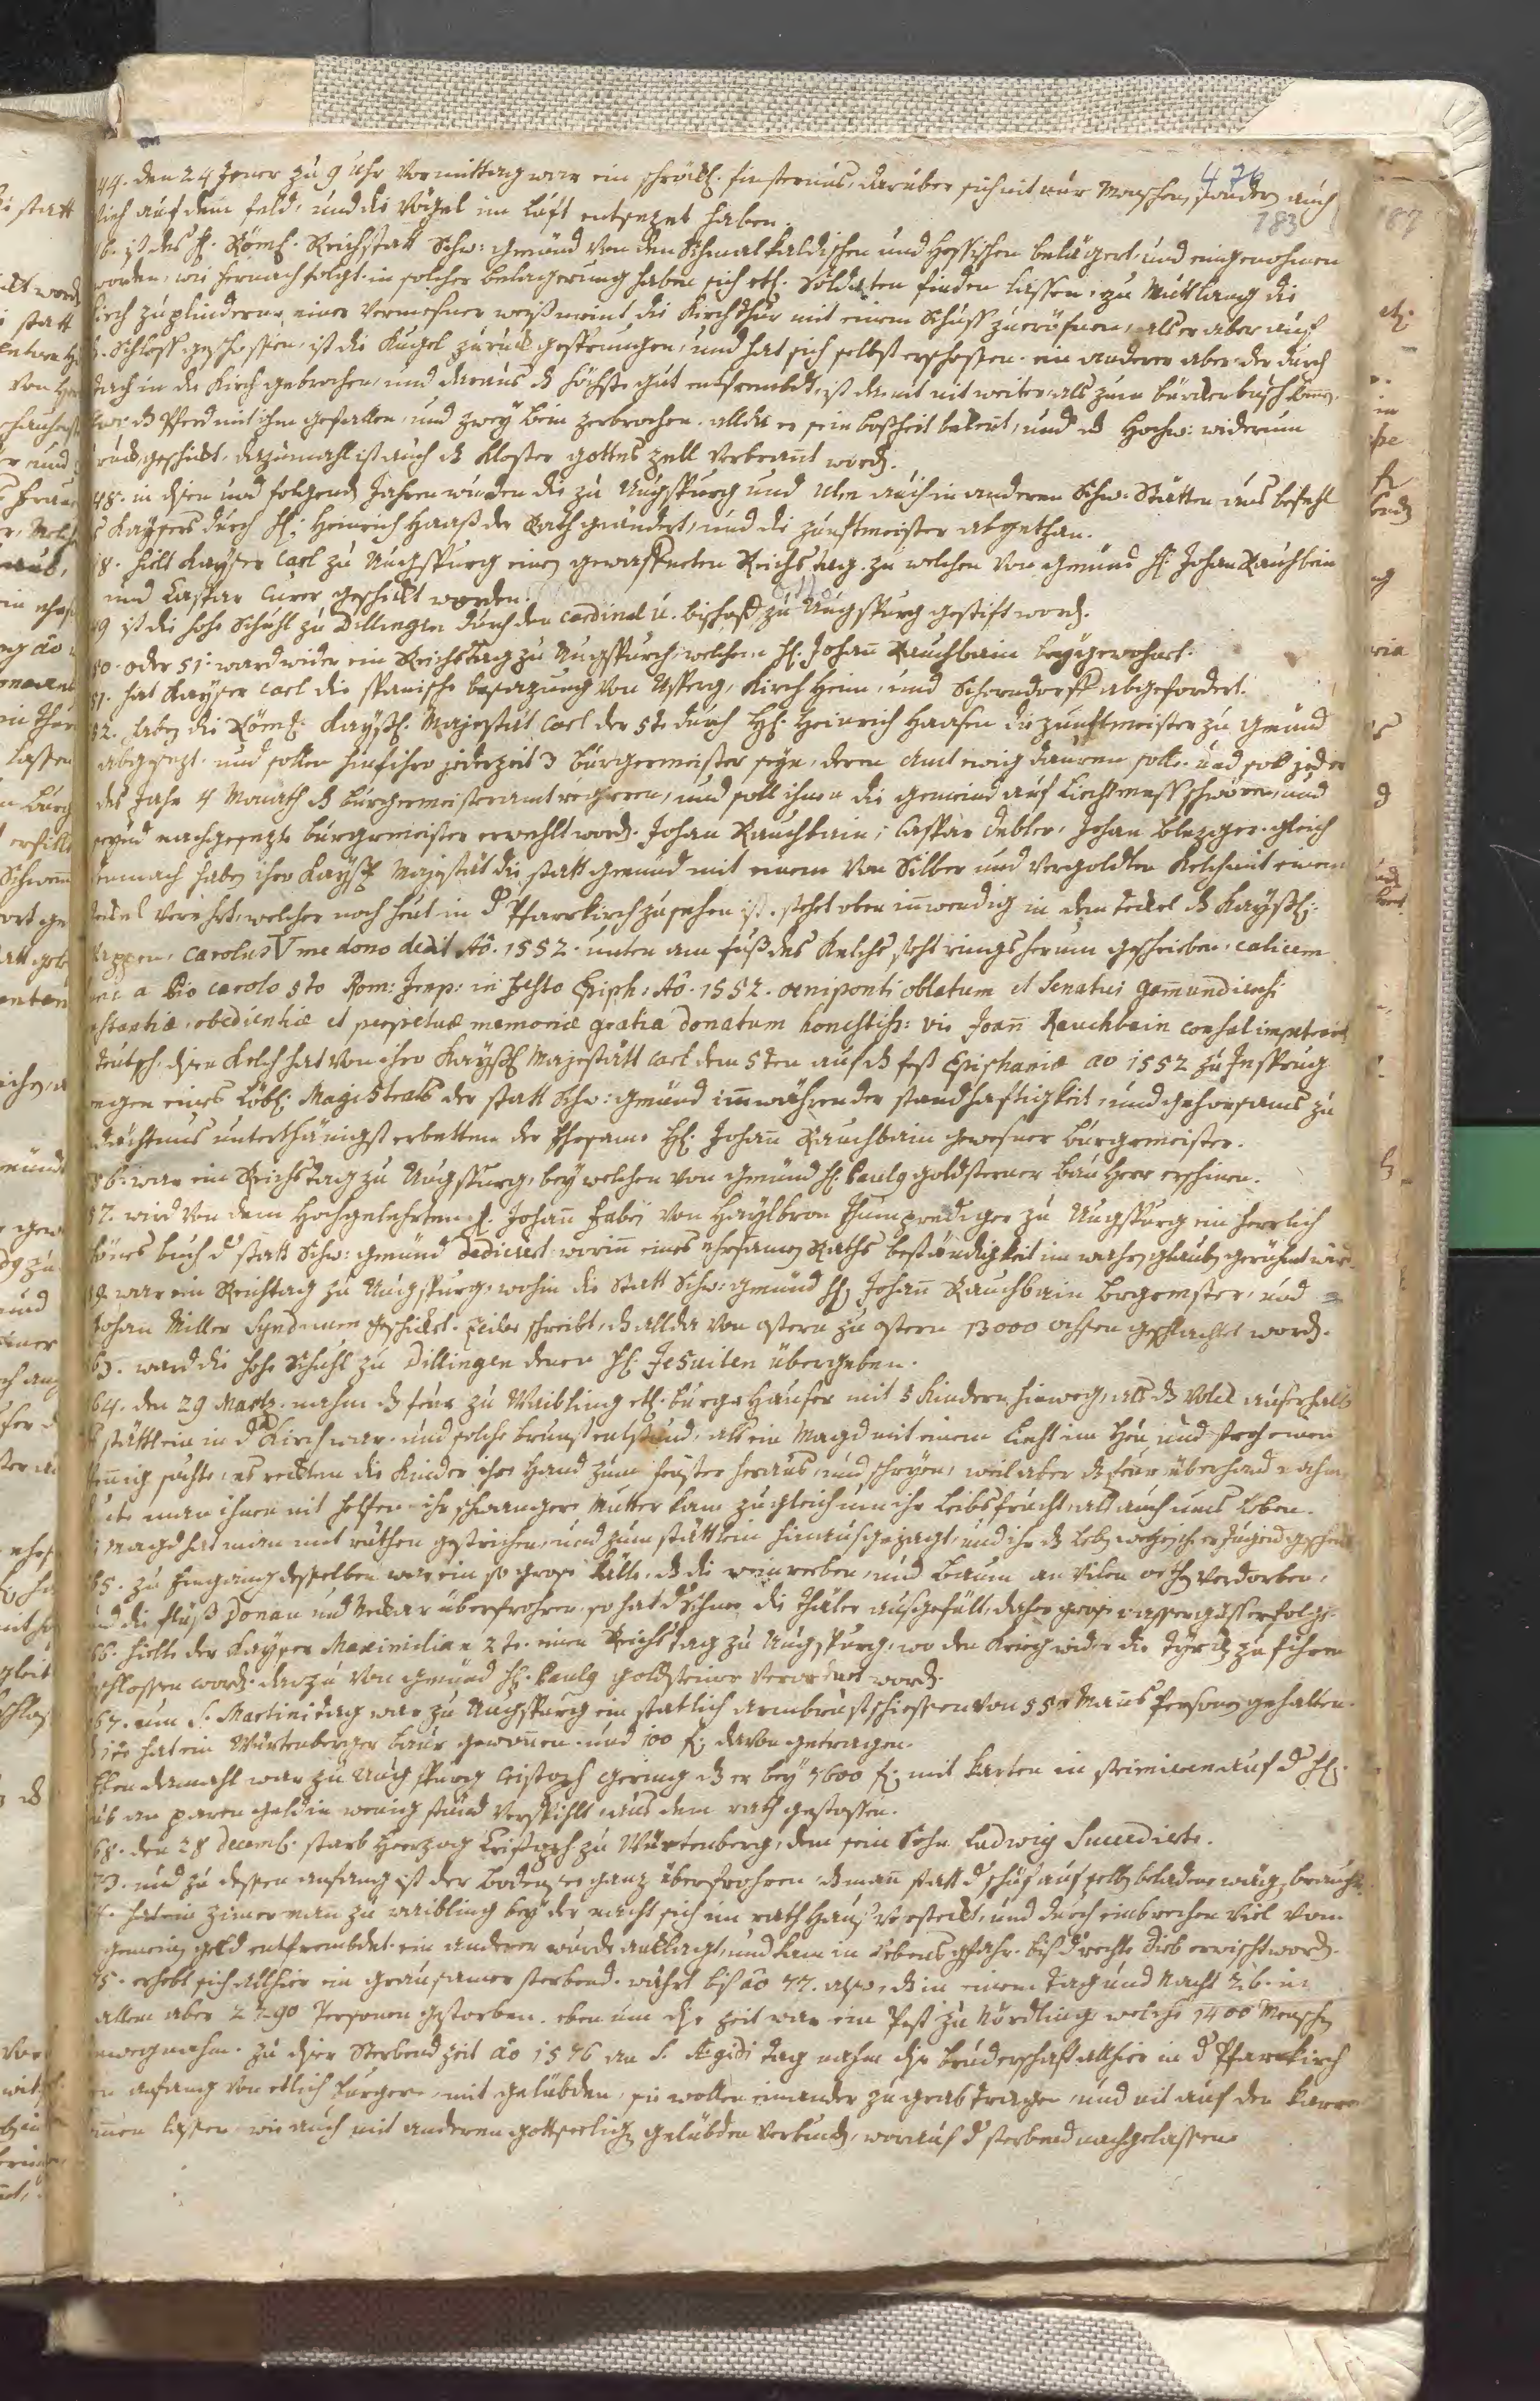 476
183
187
44. den 24 Jener zu 9 Uhr Vormittag war ein schröckl. finsternus, darüber sich nit nur Menschen, sonder auch
Vieh auf dem feld, und die Vögel im Luft entsezet haben.
46. ist des H. Röm. Reichstatt Schw: gemünd von den Schmalkaldischen und Hessischen belägert, und eingenohmen
worden, wie hernach folgt. in solcher belagerung haben sich etl. Soldaten finden lassen, zu Mutlang die
Kirch zu plinderen, einer Vermessner meint die Kirchthür mit einem Schuss zu eröfnen, als er aber auf
Schloss geschossen, ist die Kugel zuruck gesprungen, und hat sich selbst erschossen. ein anderer aber der durch
dach in die Kirch gebrochen, und daraus höchste gut entfrembdt, ist damit nit weiter, als zum
Pferd mit ihm gefallen, und zwey bein zerbrochen. allda er sein bossheit bekent, und Hochw: widerum
geschickt, dazumahl ist auch Kloster gottes zell verbrant word.
48. in disen und folgend Jahren wurden die zu Augspurg und Ulm auch in anderen Schw: Stätten aus befehl
Kaysers durch H. Heinrich Haass der Rath geändert, und die zunftmeister abgethan.
48. hielt Kayser Carl zu Augspurg einen gewaffneten Reichstag. zu welchen von gmünd H. Johan Rauchbein
und Caspar Curer geschickt worden.
49 ist die hohe Schuhl zu Dillingen durch den Cardinal u. bischoff zu Augspurg gestift word.
50. oder 51. ward wider ein Reichstag zu Augspurg, welchem H. Johan Rauchbain beygewohnt.
51. hat Kayser Carl die spanische besazung von Asperg, Kirchheim, und Schorndorff abgefordert.
52. haben die Röm. Kayssl. Majestät Carl der 5te durch H. Heinrich Haasen die zunftmeister zu gmünd
abgesezt. und sollen hinführo jederzeit 3 burgermeister seyn, deren Amt ewig dauren solle. und soll jeder
des Jahr 4 Monath burgermeisteramt regieren, und soll ihnen die gemeind auf Liechtmess schwören, und
seynd nachgesezte burgermeister erwehlt word. Johan Rauchbain, Caspar Debler, Johan Blezger. gleich
hernach haben ihro Kayssl. Majestät die statt gemünd mit einem von Silber und vergoldten Kelch mit einem
deckel verehrt, welcher noch heut in d Pfarrkirch zu sehen ist. stehet oben inwendig in dem deckel Kayssl.
Wappen, Carolus V me dono dedit Ao. 1552. unten am fuss des Kelchs steht rings herum geschriben, calicem
hunc a Dio Carolo 5to Rom: Imp: in Festo Epiph: Ao. 1552. oeniponti oblatum et Senatui gamundiensi
constantiae, obedientiae et perpetuae memoriae gratia donatum honestiss: vir Joann Rauchbein consul impetravit
teutsch. disen Kelch hat von ihro Kayssl. Majestätt Carl dem 5ten auf fest Epiphaniae ao 1552 zu Inspurg
wegen eines Löbl. Magistrats der statt Schw: gemünd immwährender standhaftigkeit, und gehorsams zu
gedächtnus unterthänigst erbetten der Ehrsame H. Johan Rauchbain gewesner burgermeister.
56. war ein Reichstag zu Augspurg, bey welchen von gemünd H. Paulg goldsteiner bau Herr erschinen.
57. wird von dem Hochgelehrten H. Johan Fabri von Haylbron Thumprediger zu Augspurg ein herrlich
schönes buch d statt Schw: gemünd dediciert worin eines ehrsamen Raths beständigkeit im wahren glauben gerühmt wird.
59. war ein Reichstag zu Augspurg, wohin die Statt Schw: gemünd H. Johan Rauchbain burgermster, und
Johan Miller Syndicum geschickt. Zeiler schreibt, allda von ostern zu ostern 13000 ochsen geschlachtet word.
63. ward die hohe Schuhl zu Dillingen denen H. Jesuiten übergeben.
64. den 29 Martz. nahm feur zu Waibling etl. burger Häuser mit 5 Kindern hinweg, als Volck auserhalb
stättlein in d Kirch war. und solche brunst entstund, als ein Magd mit einem Liecht im Heu und stroh einen
pfennig suchte, es reckten die Kinder ihre Hand zum fenster heraus, und schryen, weil aber feur überhand nahm
kunte man ihnen nit helfen. ihr schwangere Mutter kam zugleich um ihr leibsfrucht, als auch ums leben.
Magd hat man mit ruthen gestrichen, und zum stättlein hinausgejagt, und ihr leben wegen ihrer jugend geschenkt
65. zu Eingang desselben war ein so grose Kälte, die weinreben, und baum an vilen orthen verdorben,
und die flüss Donau und Neckar überfrohren, so hat d Schnee die Thäler ausgefüllt, daher grose wassergüss erfolgt.
66. hielte der Kayser Maximilian 2te. einen Reichstag zu Augspurg, wo den Krieg wider die Türken zu führen
beschlossen word. dazu von gmünd H. Paulg goldsteiner verordnet word.
67. um S. Martini tag war zu Augspurg ein statlich armbrustschiessen von 550 Mans Personen gehalten.
hat ein Würtenberger baur gewonnen und 100 f. davon getragen.
Eben damahl war zu Augspurg Cristoph Gering er bey 5600 f. mit karten in
an paren geld in wenig stund verspihlt aus dem rath gestossen.
68. den 28 Decemb. starb Herzog Cristoph zu Würtenberg, dem sein Sohn Ludwig Succedirte.
73. und zu dessen anfang ist der bodensee ganz überfrohren, man statt d schif auf selben beladene wägen brauchte.
hat ein zimerman zu waibling bey der nacht sich im rathHaus versteckt, und durch einbrechen viel vom
gemeinen geld entfrembdet. ein anderer wurde anklagt, und kam in lebens gfahr. biss d rechte dieb erwischt word.
75. erhebt sich allhier ein grausamer sterbend. währt biss ao 77. also, in einem tag und Nacht 26. in
allem aber 2790 Personen gestorben. eben um dise zeit war ein Pest zu Nördling welche 1400 Menschen
hinwegnahm. zu diser Sterbend zeit ao 1576 an S. Aegidi tag nahm dise bruderschafft allhier in d Pfarrkirch
den anfang von etlich burgern, mit gelübden, sie wollen einander zu grab tragen, und nit auf den karren
lassen wie auch mit anderen gottseelichen gelübden verbunden, worauf d sterbend nachgelassen.